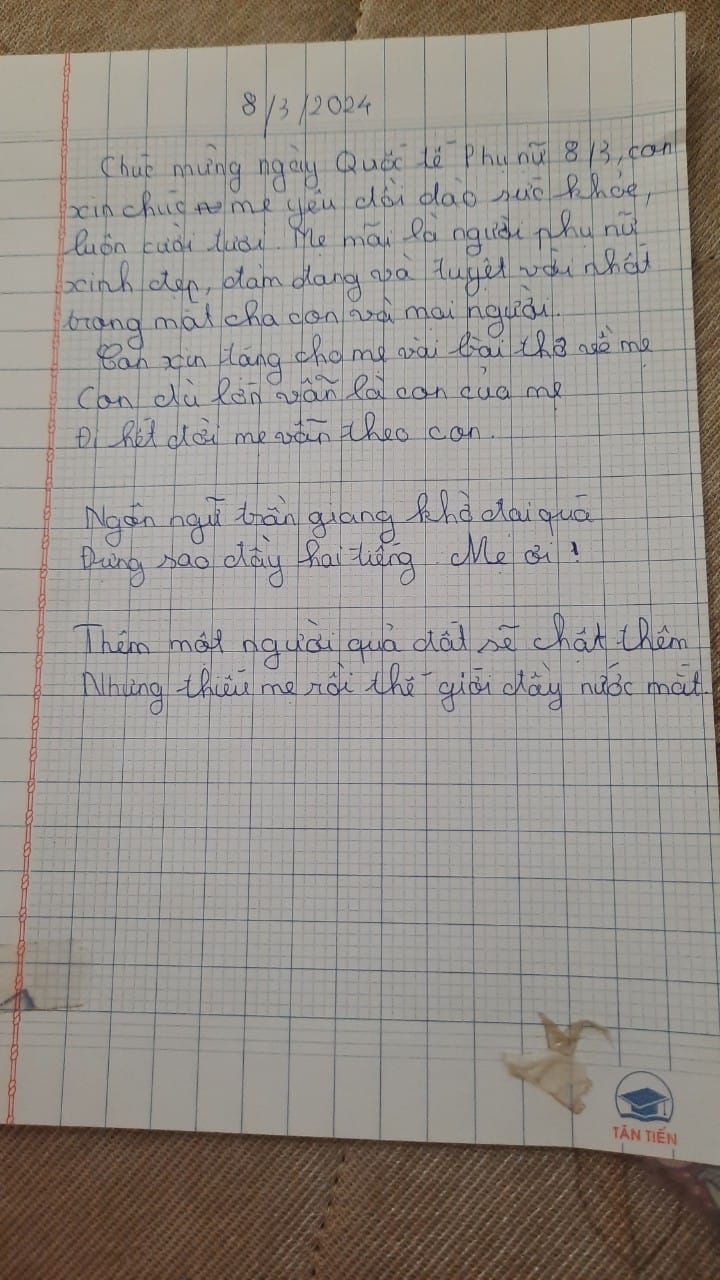 8/3/2024
Chúc mừng ngày Quốc tế Phụ nữ 8/3, con
xin chúc mẹ yêu dồi dào sức khỏe,
luôn cười tươi. Mẹ mãi là người phụ nữ
xinh đẹp, đảm đang và tuyệt vời nhất
trong mắt cha con và mọi người.
Con xin tặng cho mẹ vài bài thơ về mẹ
Con dù lớn vẫn là con của mẹ
Đi hết đời mẹ vẫn theo con.
Ngôn ngữ trần giang khờ dại quá
Đựng sao đầy hai tiếng Mẹ ơi!
Thêm một người quả đất sẽ chật thêm
Nhưng thiếu mẹ rồi thế giới đầy nước mắt.
TÂN TIẾN